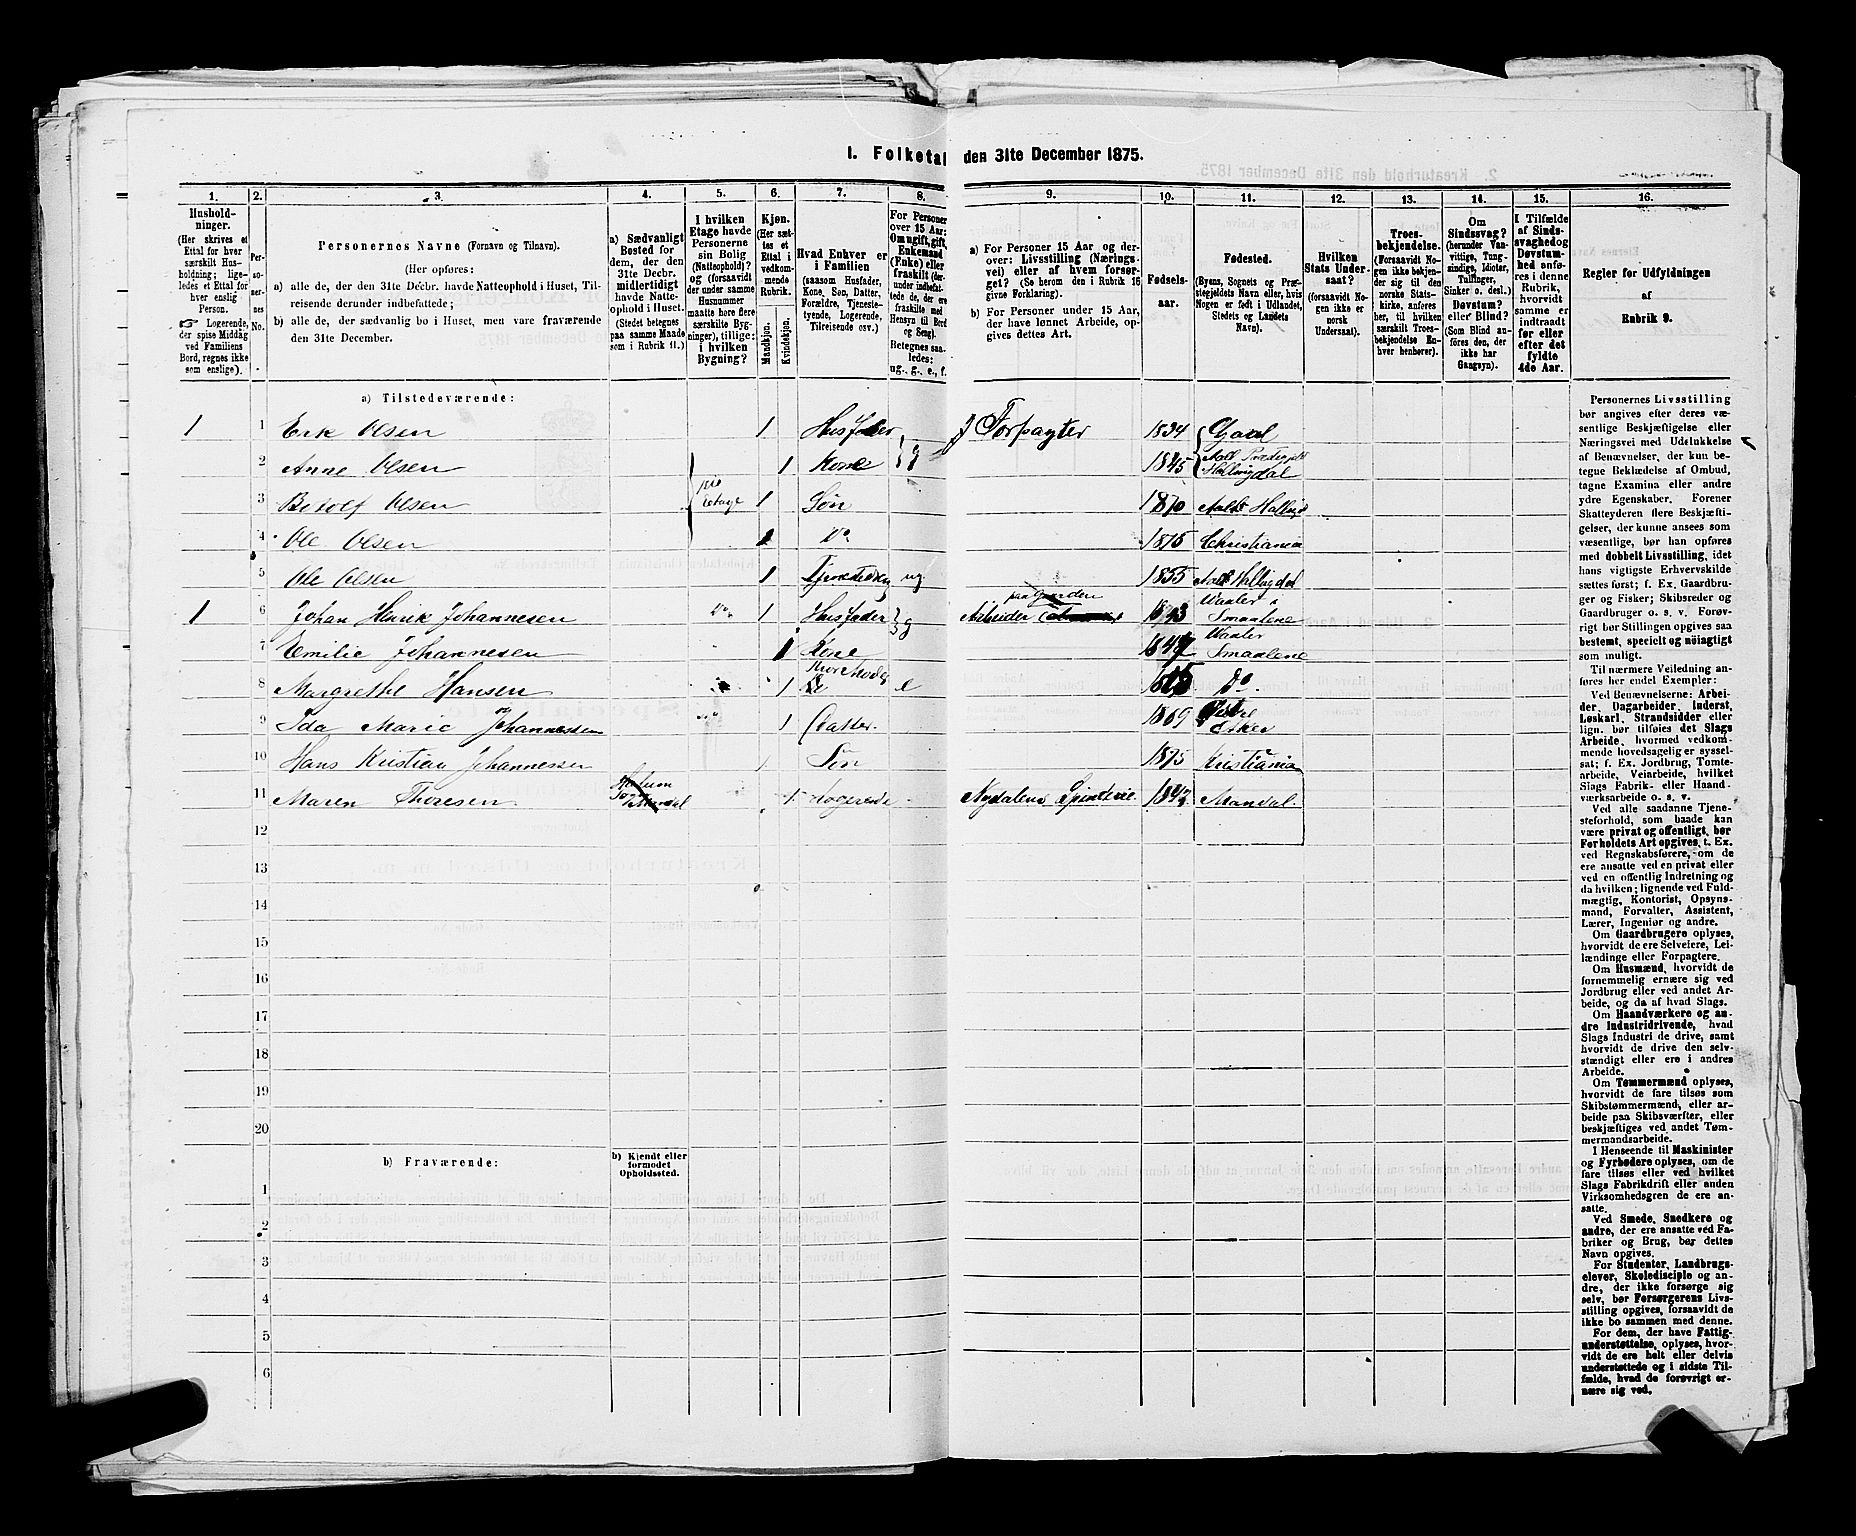 I. Folketal den 31te December 1875.
1. 2. 3. 4. 5. 6. 7. 8. 9. 10. 11. 12. 13. 14. 15. 16.
Hushold-
ninger.
(Her skrives et
Ettal for hver
særskilt Hus-
holdning; lige-
ledes et Ettal for
hver enslig
Person.
☞ Logerende,
der spise Middag
ved Familiens
Bord, regnes ikke
som enslige).
Per-
so-
ner-
nes
No.
Personernes Navne (Fornavn og Tilnavn).
(Her opføres:
a) alle de, der den 31te Decbr. havde Natteophold i Huset, Til-
reisende derunder indbefattede;
b) alle de, der sædvanlig bo i Huset, men vare fraværende
den 31te December.
a) Sædvanligt
Bosted for
dem, der den
31te Decbr.
midlertidigt
havde Natte-
ophold i Huset.
(Stedet betegnes
paa samme Maade
som i Rubrik 11.)
I hvilken
Etage havde
Personerne
sin Bolig
(Natteophold)?
og (forsaavidt
der under samme
Husnummer
maatte høre flere
særskilte Byg-
ninger), tillige:
i hvilken
Bygning?
Kjøn.
(Her sæt-
tes et
Ettal i
vedkom-
mende
Rubrik.)
Mandkjøn.
Kvindekjøn.
Hvad Enhver er
i Familien
(saasom Husfader,
Kone, Søn, Datter,
Forældre, Tjeneste-
tyende, Logerende,
Tilreisende osv.)
For Personer
over 15 Aar:
Om ugift, gift,
Enkemand
(Enke) eller
fraskilt (der-
under indbefat-
tede de, der ere
fraskilte med
Hensyn til Bord
og Seng).
Betegnes saa-
ledes:
ug., g., e., f.
a) For Personer 15 Aar og der-
over: Livsstilling (Nærings-
vei) eller af hvem forsør-
get? (Se herom den i Rubrik 16
givne Forklaring).
b) For Personer under 15 Aar,
der have lønnet Arbeide, op-
gives dettes Art.
Fødsels-
aar.
Fødested.
(Byens, Sognets og Præ-
stegjeldets Navn eller, hvis
Nogen er født i Udlandet,
Stedets og Landets
Navn).
Hvilken
Stats Under-
saat?
(forsaavidt No-
gen ikke er
norsk
Undersaat).
Troes-
bekjendelse.
(Forsaavidt No-
gen ikke bekjen-
der sig til den
norske Stats-
kirke, anføres
her, til hvilken
særskilt Troes-
bekjendelse En-
hver henhører).
Om
Sindssvag?
(herunder Van-
vittige, Tung-
sindige, Idioter,
Tullinger,
Sinker o. desl.)
Døvstum?
eller Blind?
(Som Blind an-
føres den, der
ikke har
Gangsyn).
I Tilfælde
af Sinds-
svaghed og
Døvstum-
hed anfø-
res i denne
Rubrik,
hvorvidt
samme er
indtraadt
før eller
efter det
fyldte
4de Aar.
Regler for Udfyldningen
af
Rubrik 9.
a) Tilstedeværende:
1 1 Erik Olsen 1 Husfader Forpagter 1834 Gaal
2 Anne Olsen 1 Kone g 1845 Aal Hallingdal
3 Olsen Etage 1 Søn 1870 Aal
4 Ole Olsen Do 1875 Christiania
5 Ole Olsen 1 ug 1855 Aal Hallingdal
1 6 Johan Henrik Johannesen Do 1 Husfader g Arbeider paa Gaarden 1843 Waaler i Smaalene
7 Emilie Johannesen 1 Kone Waaler Smaalene
8 Margrethe Hansen 1 e Do.
9 Ida Marie Johannessen Do 1 Datter. 1869
10 Hans Kristian Johannessen 1 Søn 1875 Kristiania
11 Maren Thoresen 1 Logerende Nydalens Spinderie. Mandal.
12
13
14
15
16
17
18
19
20
b) Fraværende:
b) Kjendt eller
formodet
Opholdssted.
1
2
3
4
5
6
Personernes Livsstilling
bør angives efter deres væ-
sentlige Beskjæftigelse eller
Næringsvei med Udelukkelse
af Benævnelser, der kun be-
tegne Beklædelse af Ombud,
tagne Examina eller andre
ydre Egenskaber. Forener
Skatteyderen flere Beskjæfti-
gelser, der kunne ansees som
væsentlige, bør han opføres
med dobbelt Livsstilling, idet
hans vigtigste Erhvervskilde
sættes først; f. Ex. Gaardbru-
ger og Fisker; Skibsreder og
Gaardbruger o. s. v. Forøv-
rigt bør Stillingen opgives saa
bestemt, specielt og nøiagtigt
som muligt.
Til nærmere Veiledning an-
føres her endel Exempler:
Ved Benævnelserne: Arbei-
der, Dagarbeider, Inderst,
Løskarl, Strandsidder eller
lign. bør tilføies det Slags
Arbeide, hvormed vedkom-
mende hovedsagelig er syssel-
sat; f. Ex. Jordbrug, Tomte-
arbeide, Veiarbeide, hvilket
Slags Fabrik- eller Haand-
værksarbeide o. s. v.
Ved alle saadanne Tjene-
steforhold, som baade kan
være privat og offentligt, bør
Forholdets Art opgives, t. Ex.
ved Regnskabsførere, om de
ere ansatte ved en privat eller
ved en offentlig Indretning og
da hvilken; lignende ved Fuld-
mægtig, Kontorist, Opsyns-
mand, Forvalter, Assistent,
Lærer, Ingeniør og andre.
Om Gaardbrugere oplyses,
hvorvidt de ere Selveiere, Lei-
lændinge eller Forpagtere.
Om Husmænd, hvorvidt de
fornemmelig ernære sig ved
Jordbrug eller ved andet Ar-
beide, og da af hvad Slags.
Om Haandværkere og an-
dre Industridrivende, hvad
Slags Industri de drive, samt
hvorvidt de drive den selv-
stændigt eller ere i andres
Arbeide.
Om Tømmermænd oplyses,
hvorvidt de fare tilsøs som
Skibstømmermænd, eller ar-
beide paa Skibsværfter, eller
beskjæftiges ved andet Tøm-
mermandsarbeide.
I Henseende til Maskinister
og Fyrbødere oplyses, om de
fare tilsøs eller ved hvilket
Slags Fabrikdrift eller anden
Virksomhedsgren de ere an-
satte.
Ved Smede, Snedkere og
andre, der ere ansatte ved Fa-
briker og Brug, bør dettes
Navn opgives.
For Studenter, Landbrugs-
elever, Skoledisciple og an-
dre, der ikke forsørge sig
selv, bør Forsørgerens Livs-
stilling opgives, forsaavidt de
ikke bo sammen med denne.
For dem, der have Fattig-
understøttelse, oplyses, hvor-
vidt de ere helt eller delvis
understøttede og i sidste Til-
fælde, hvad de forøvrigt er-
nære sig ved.